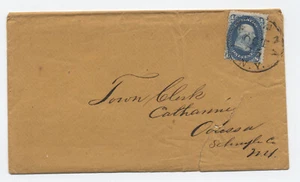 Town Clerk
Catharine
Odessa
Schuyler Co
N.Y.